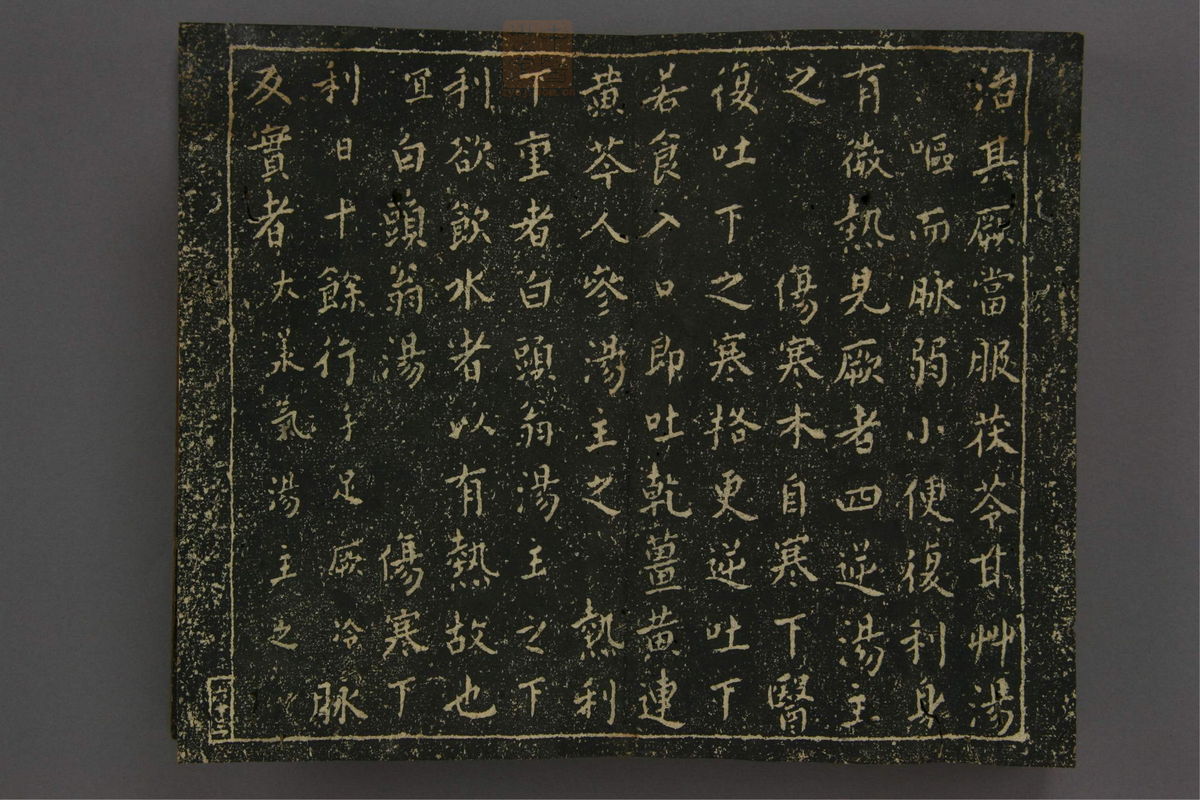 治其厥當服茯苓甘艸湯
嘔而脈弱小便復利身
有微熱見厥者四逆湯主
之 傷寒本自寒下醫
復吐下之寒格更逆吐下
若食入口即吐乾薑黃連
黃芩人參湯主之 熱利
下重者白頭翁湯主之下
利欲飲水者以有熱故也
宜白頭翁湯 傷寒下
利日十餘行手足厥冷脉
反實者大承氣湯主之